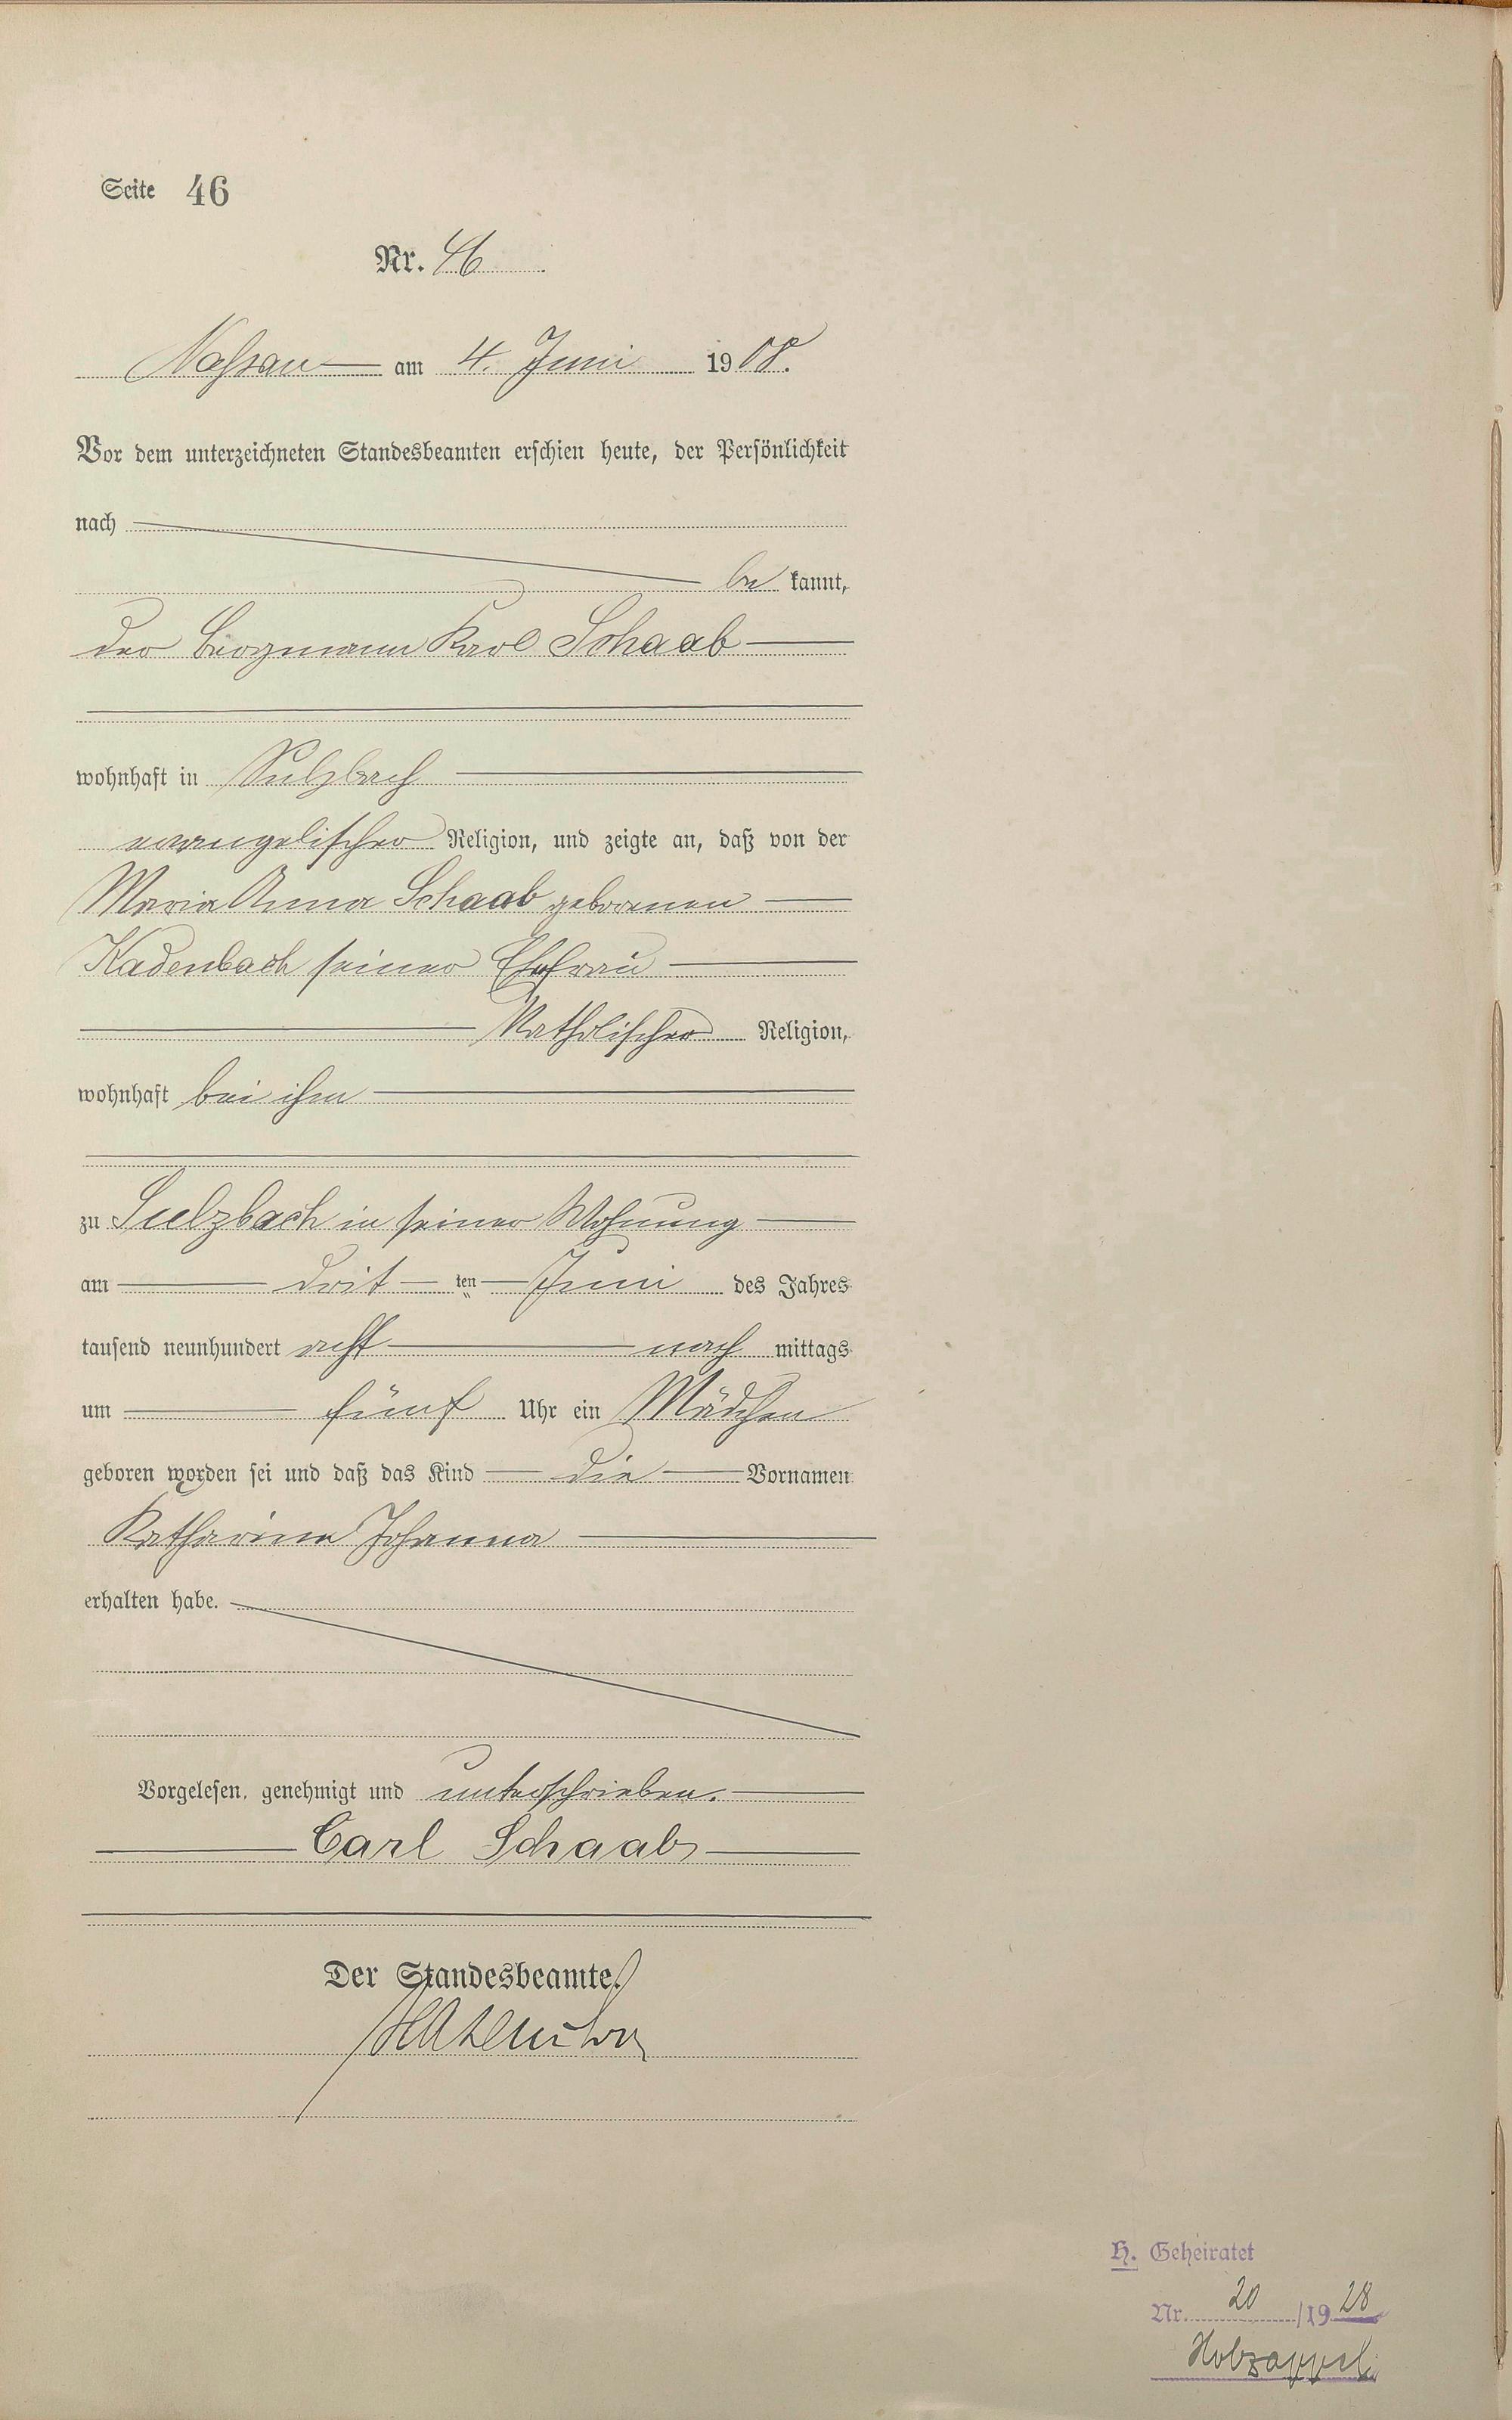 Seite 46
Nr. 46
Nassau am 4. Juni 1908.
Vor dem unterzeichneten Standesbeamten erschien heute, der Persönlichkeit
nach
be kannt,
der Bergmann Karl Schaab
wohnhaft in Sulzbach
evangelischer Religion, und zeigte an, daß von der
Maria Anna Schaab geborenen
Kadenbach seiner Ehefrau
katholischer Religion,
wohnhaft bei ihm
zu Sulzbach in seiner Wohnung
am dritten Juni des Jahres
tausend neunhundert acht nach mittags
um fünf Uhr ein Mädchen
geboren worden sei und daß das Kind die Vornamen
Katharina Johanna
erhalten habe.
Vorgelesen, genehmigt und unterschrieben.
Carl Schaab
Der Standesbeamte.
H. Geheiratet
Nr. 20 /1928
Holzappel